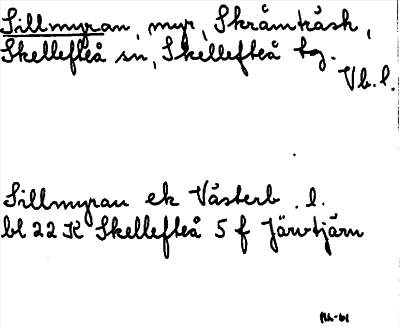 Sillmyran, myr, Skråmträsk,
Skellefteå sn, Skellefteå tg.
Vb. l.
Sillmyran ek Västerb. l.
bl 22 K Skellefteå 5 f Järvtjärn